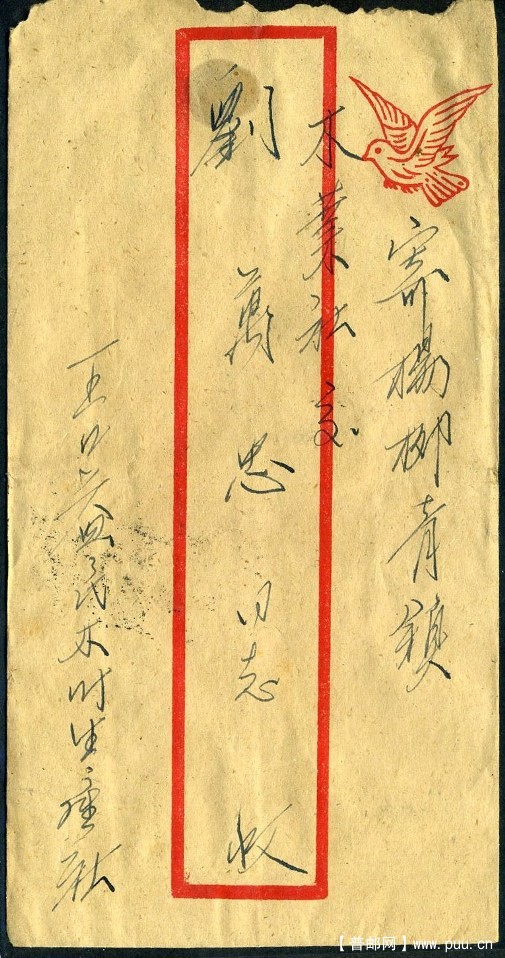 寄楊柳青鎮
木業社交
劉萬忠同志 收
王口 木 生產社
【普邮网】www.puu.cn